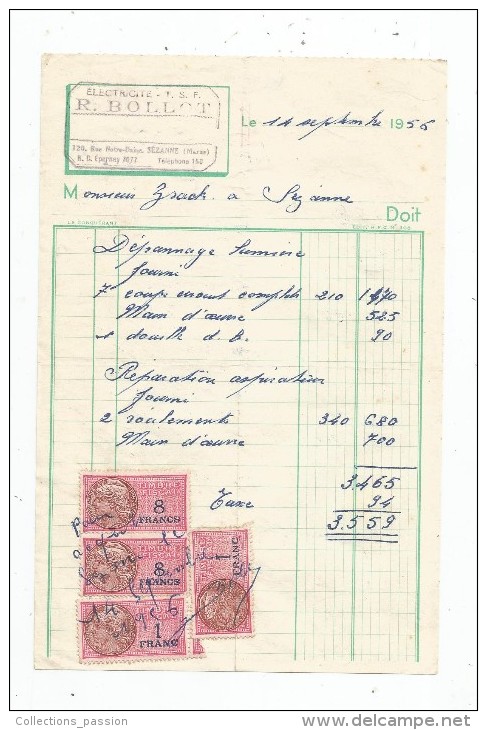 ÉLECTRICITÉ - T. S. F.
R. BOLLOT
120, Rue Notre-Dame, SÉZANNE (Marne)
R. C. Épernay 1677 Téléphone 152
Le 14 septembre 1956
Monsieur à Sézanne
Doit
LA CONQUÉRANTE
Dépannage Lumière
fourni
7 coupe circuit complets 210 1470
Main d'œuvre 525
1 douille d. B. 90
Réparation aspirateur
fourni
2 roulements 340 680
Main d'œuvre 700
3.465
Taxe 94
3.559
TIMBRE FISCAL
8 FRANCS
TIMBRE FISCAL
8 FRANCS
1 FRANC
1 FRANC
Pour acquit
le 14 septembre
1956
Collections_passion
www.delcampe.net